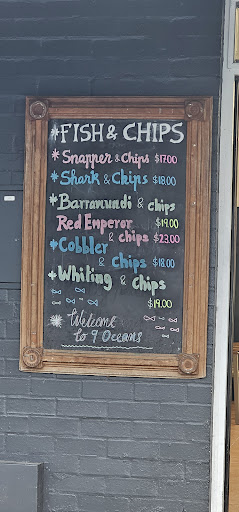 *FISH & CHIPS
* Snapper & Chips $17.00
* Shark & Chips $18.00
* Barramundi & chips
$19.00
Red Emperor
& chips $23.00
* Cobbler
& Chips $18.00
* Whiting & Chips
$19.00
* Welcome
to 9 Oceans